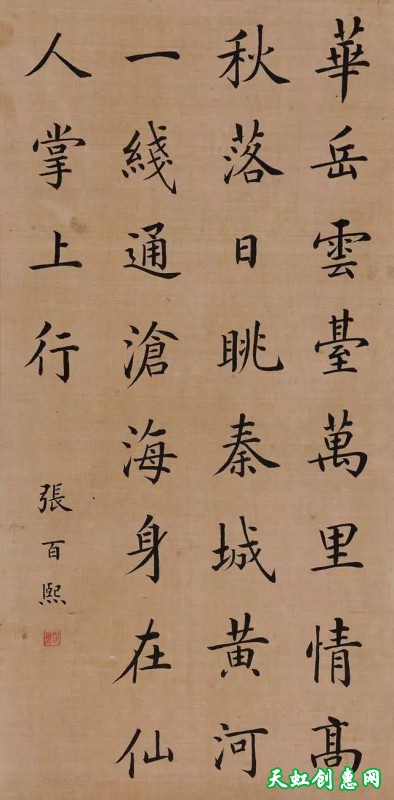 華岳雲臺萬里情高
秋落日眺秦城黄河
一綫通滄海身在仙
人掌上行
張百熙
天虹创惠网